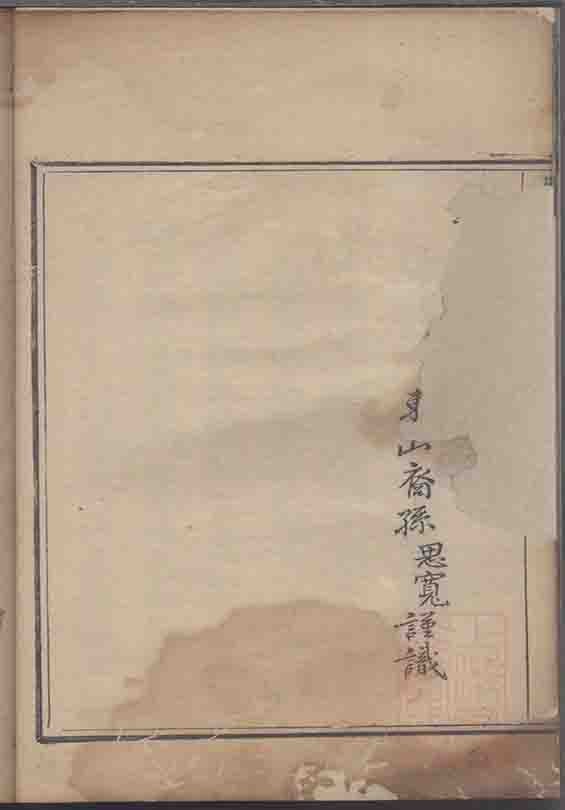 東山裔孫思寬謹識